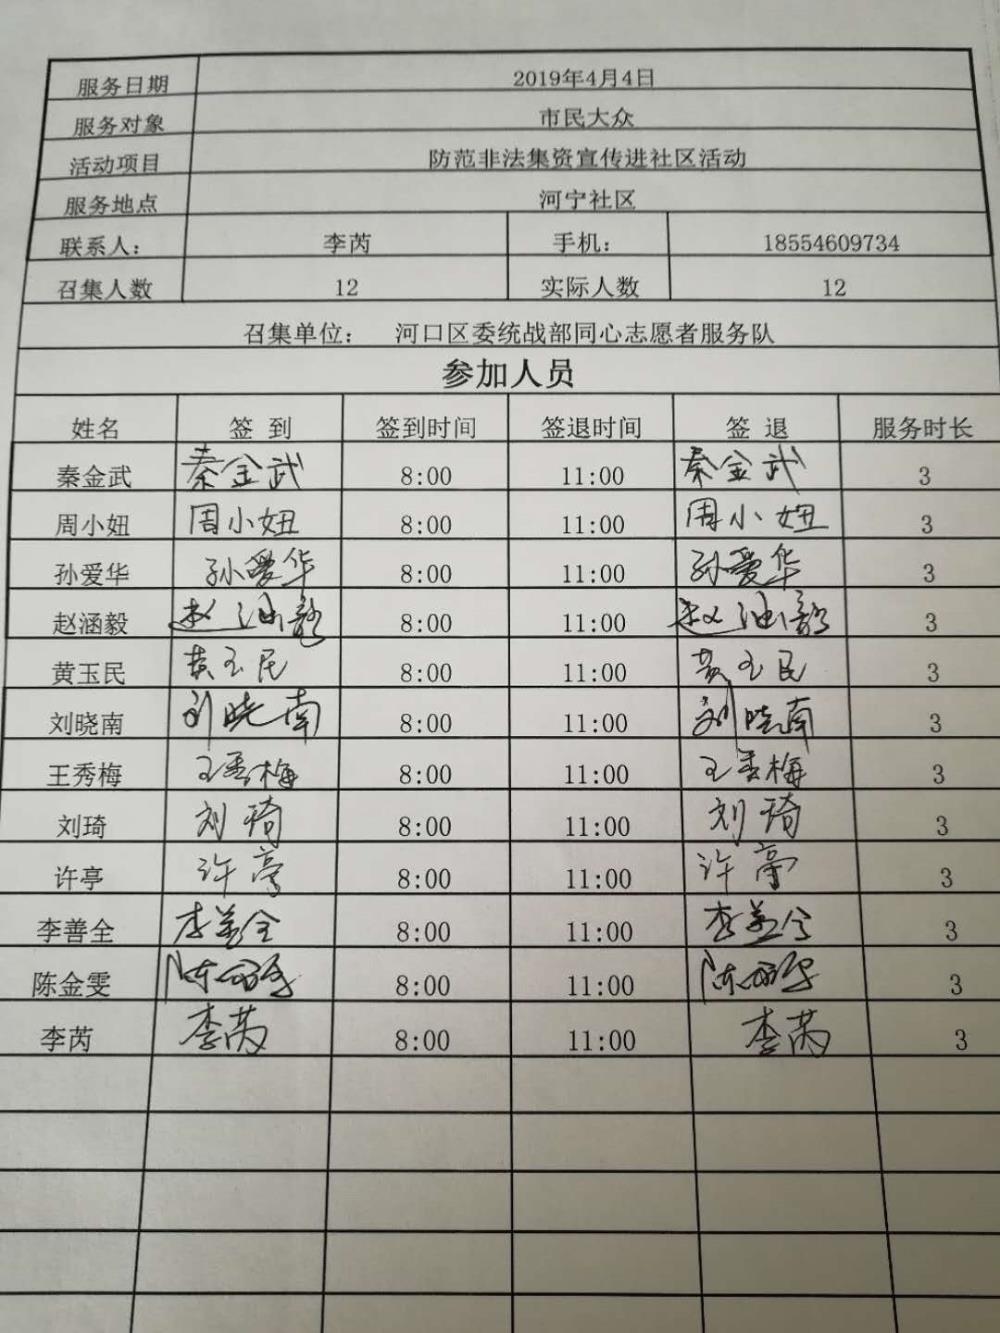 服务日期 2019年4月4日
服务对象 市民大众
活动项目 防范非法集资宣传进社区活动
服务地点 河宁社区
联系人： 李芮 手机： 18554609734
召集人数 12 实际人数 12
召集单位： 河口区委统战部同心志愿者服务队
参加人员
姓名 签 到 签到时间 签退时间 签 退 服务时长
秦金武 秦金武 8:00 11:00 秦金武 3
周小妞 周小妞 8:00 11:00 周小妞 3
孙爱华 孙爱华 8:00 11:00 孙爱华 3
赵涵毅 赵涵毅 8:00 11:00 赵涵毅 3
黄玉民 黄玉民 8:00 11:00 黄玉民 3
刘晓南 刘晓南 8:00 11:00 刘晓南 3
王秀梅 王秀梅 8:00 11:00 王秀梅 3
刘琦 刘琦 8:00 11:00 刘琦 3
许亭 许亭 8:00 11:00 许亭 3
李善全 李善全 8:00 11:00 李善全 3
陈金雯 陈金雯 8:00 11:00 陈金雯 3
李芮 李芮 8:00 11:00 李芮 3